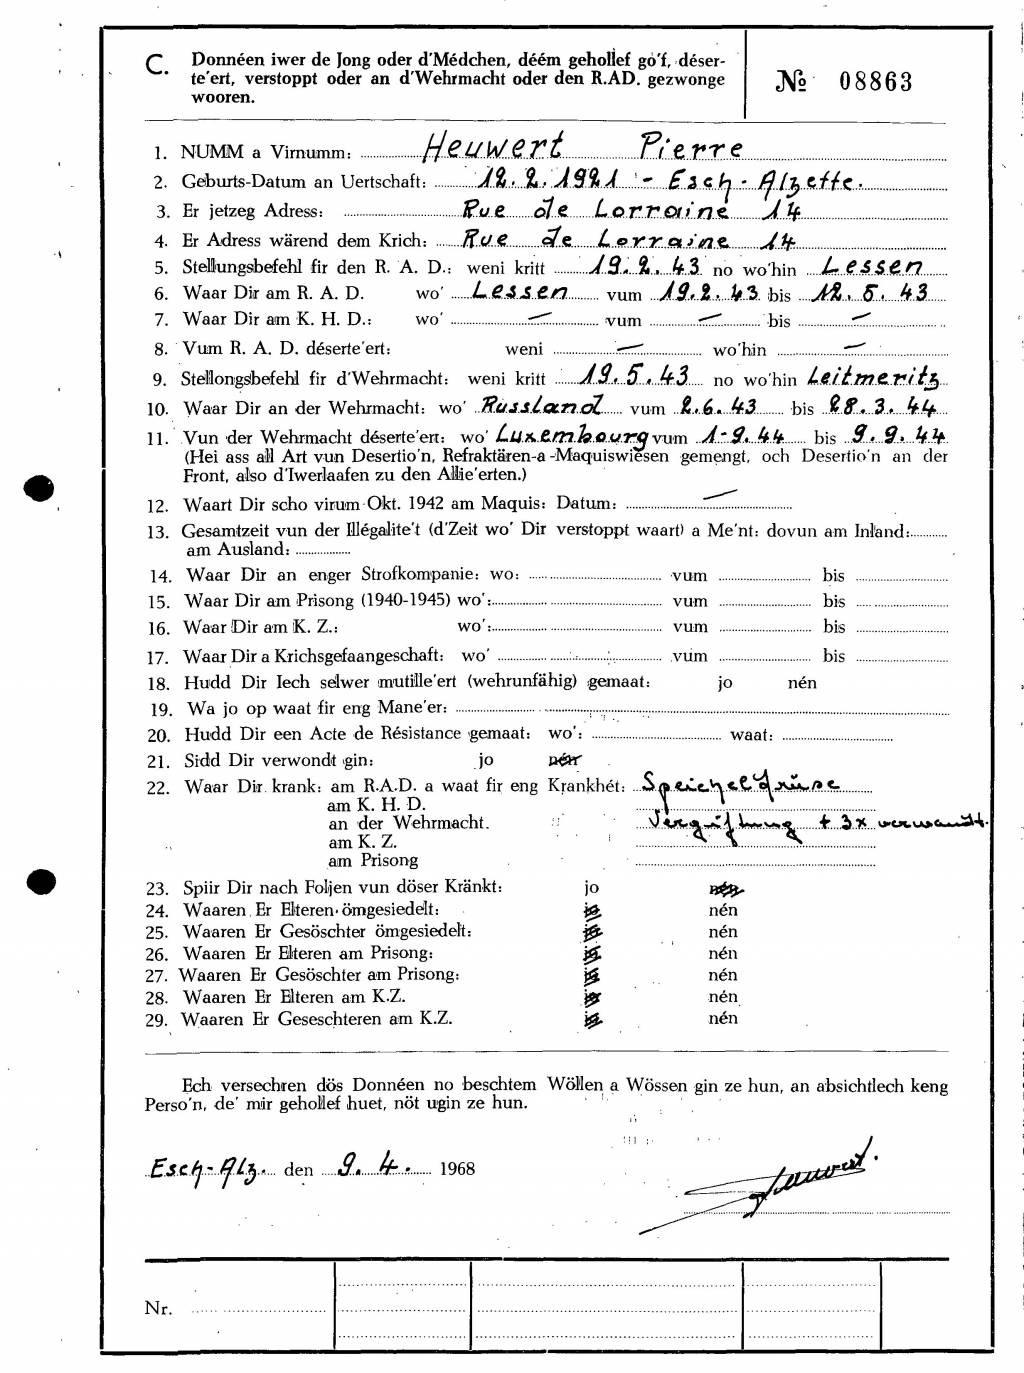 C. Donnéen iwer de Jong oder d'Médchen, déém gehollef go'f, déser-
te'ert, verstoppt oder an d'Wehrmacht oder den R.AD. gezwonge
wooren.
№ 08863
1. NUMM a Virnumm: Heuwert Pierre
2. Geburts-Datum an Uertschaft: 12.2.1921 - Esch-Alzette.
3. Er jetzeg Adress: Rue de Lorraine 14
4. Er Adress wärend dem Krich: Rue de Lorraine 14
5. Stellungsbefehl fir den R. A. D.: weni kritt 19.2.43 no wo'hin Lessen
6. Waar Dir am R. A. D. wo' Lessen vum 19.2.43 bis 12.5.43
7. Waar Dir am K. H. D.: wo' — vum — bis —
8. Vum R. A. D. déserte'ert: weni — wo'hin —
9. Stellongsbefehl fir d'Wehrmacht: weni kritt 19.5.43 no wo'hin Leitmeritz
10. Waar Dir an der Wehrmacht: wo' Russland vum 2.6.43 bis 28.3.44
11. Vun der Wehrmacht déserte'ert: wo' Luxembourg vum 1-9.44 bis 9.9.44
(Hei ass all Art vun Desertio'n, Refraktären-a-Maquiswiesen gemengt, och Desertio'n an der
Front, also d'Iwerlaafen zu den Allie'erten.)
12. Waart Dir scho virum Okt. 1942 am Maquis: Datum: —
13. Gesamtzeit vun der Illégalite't (d'Zeit wo' Dir verstoppt waart) a Me'nt: dovun am Inland:
am Ausland:
14. Waar Dir an enger Strofkompanie: wo: vum bis
15. Waar Dir am Prisong (1940-1945) wo': vum bis
16. Waar Dir am K. Z.: wo': vum bis
17. Waar Dir a Krichsgefaangeschaft: wo' vum bis
18. Hudd Dir Iech selwer mutille'ert (wehrunfähig) gemaat: jo nén
19. Wa jo op waat fir eng Mane'er:
20. Hudd Dir een Acte de Résistance gemaat: wo': waat:
21. Sidd Dir verwondt gin: jo nén
22. Waar Dir krank: am R.A.D. a waat fir eng Krankhét: Speicheldrüse
am K. H. D.
an der Wehrmacht. Vergiftung + 3x verwandt.
am K. Z.
am Prisong
23. Spiir Dir nach Foljen vun döser Kränkt: jo nén
24. Waaren Er Elteren ömgesiedelt: jo nén
25. Waaren Er Gesöschter ömgesiedelt: jo nén
26. Waaren Er Elteren am Prisong: jo nén
27. Waaren Er Gesöschter am Prisong: jo nén
28. Waaren Er Elteren am K.Z. jo nén
29. Waaren Er Geseschteren am K.Z. jo nén
Ech versechren dös Donnéen no beschtem Wöllen a Wössen gin ze hun, an absichtlech keng
Perso'n, de' mir gehollef huet, nöt ugin ze hun.
Esch-Alz. den 9.4. 1968
Heuwert.
Nr.